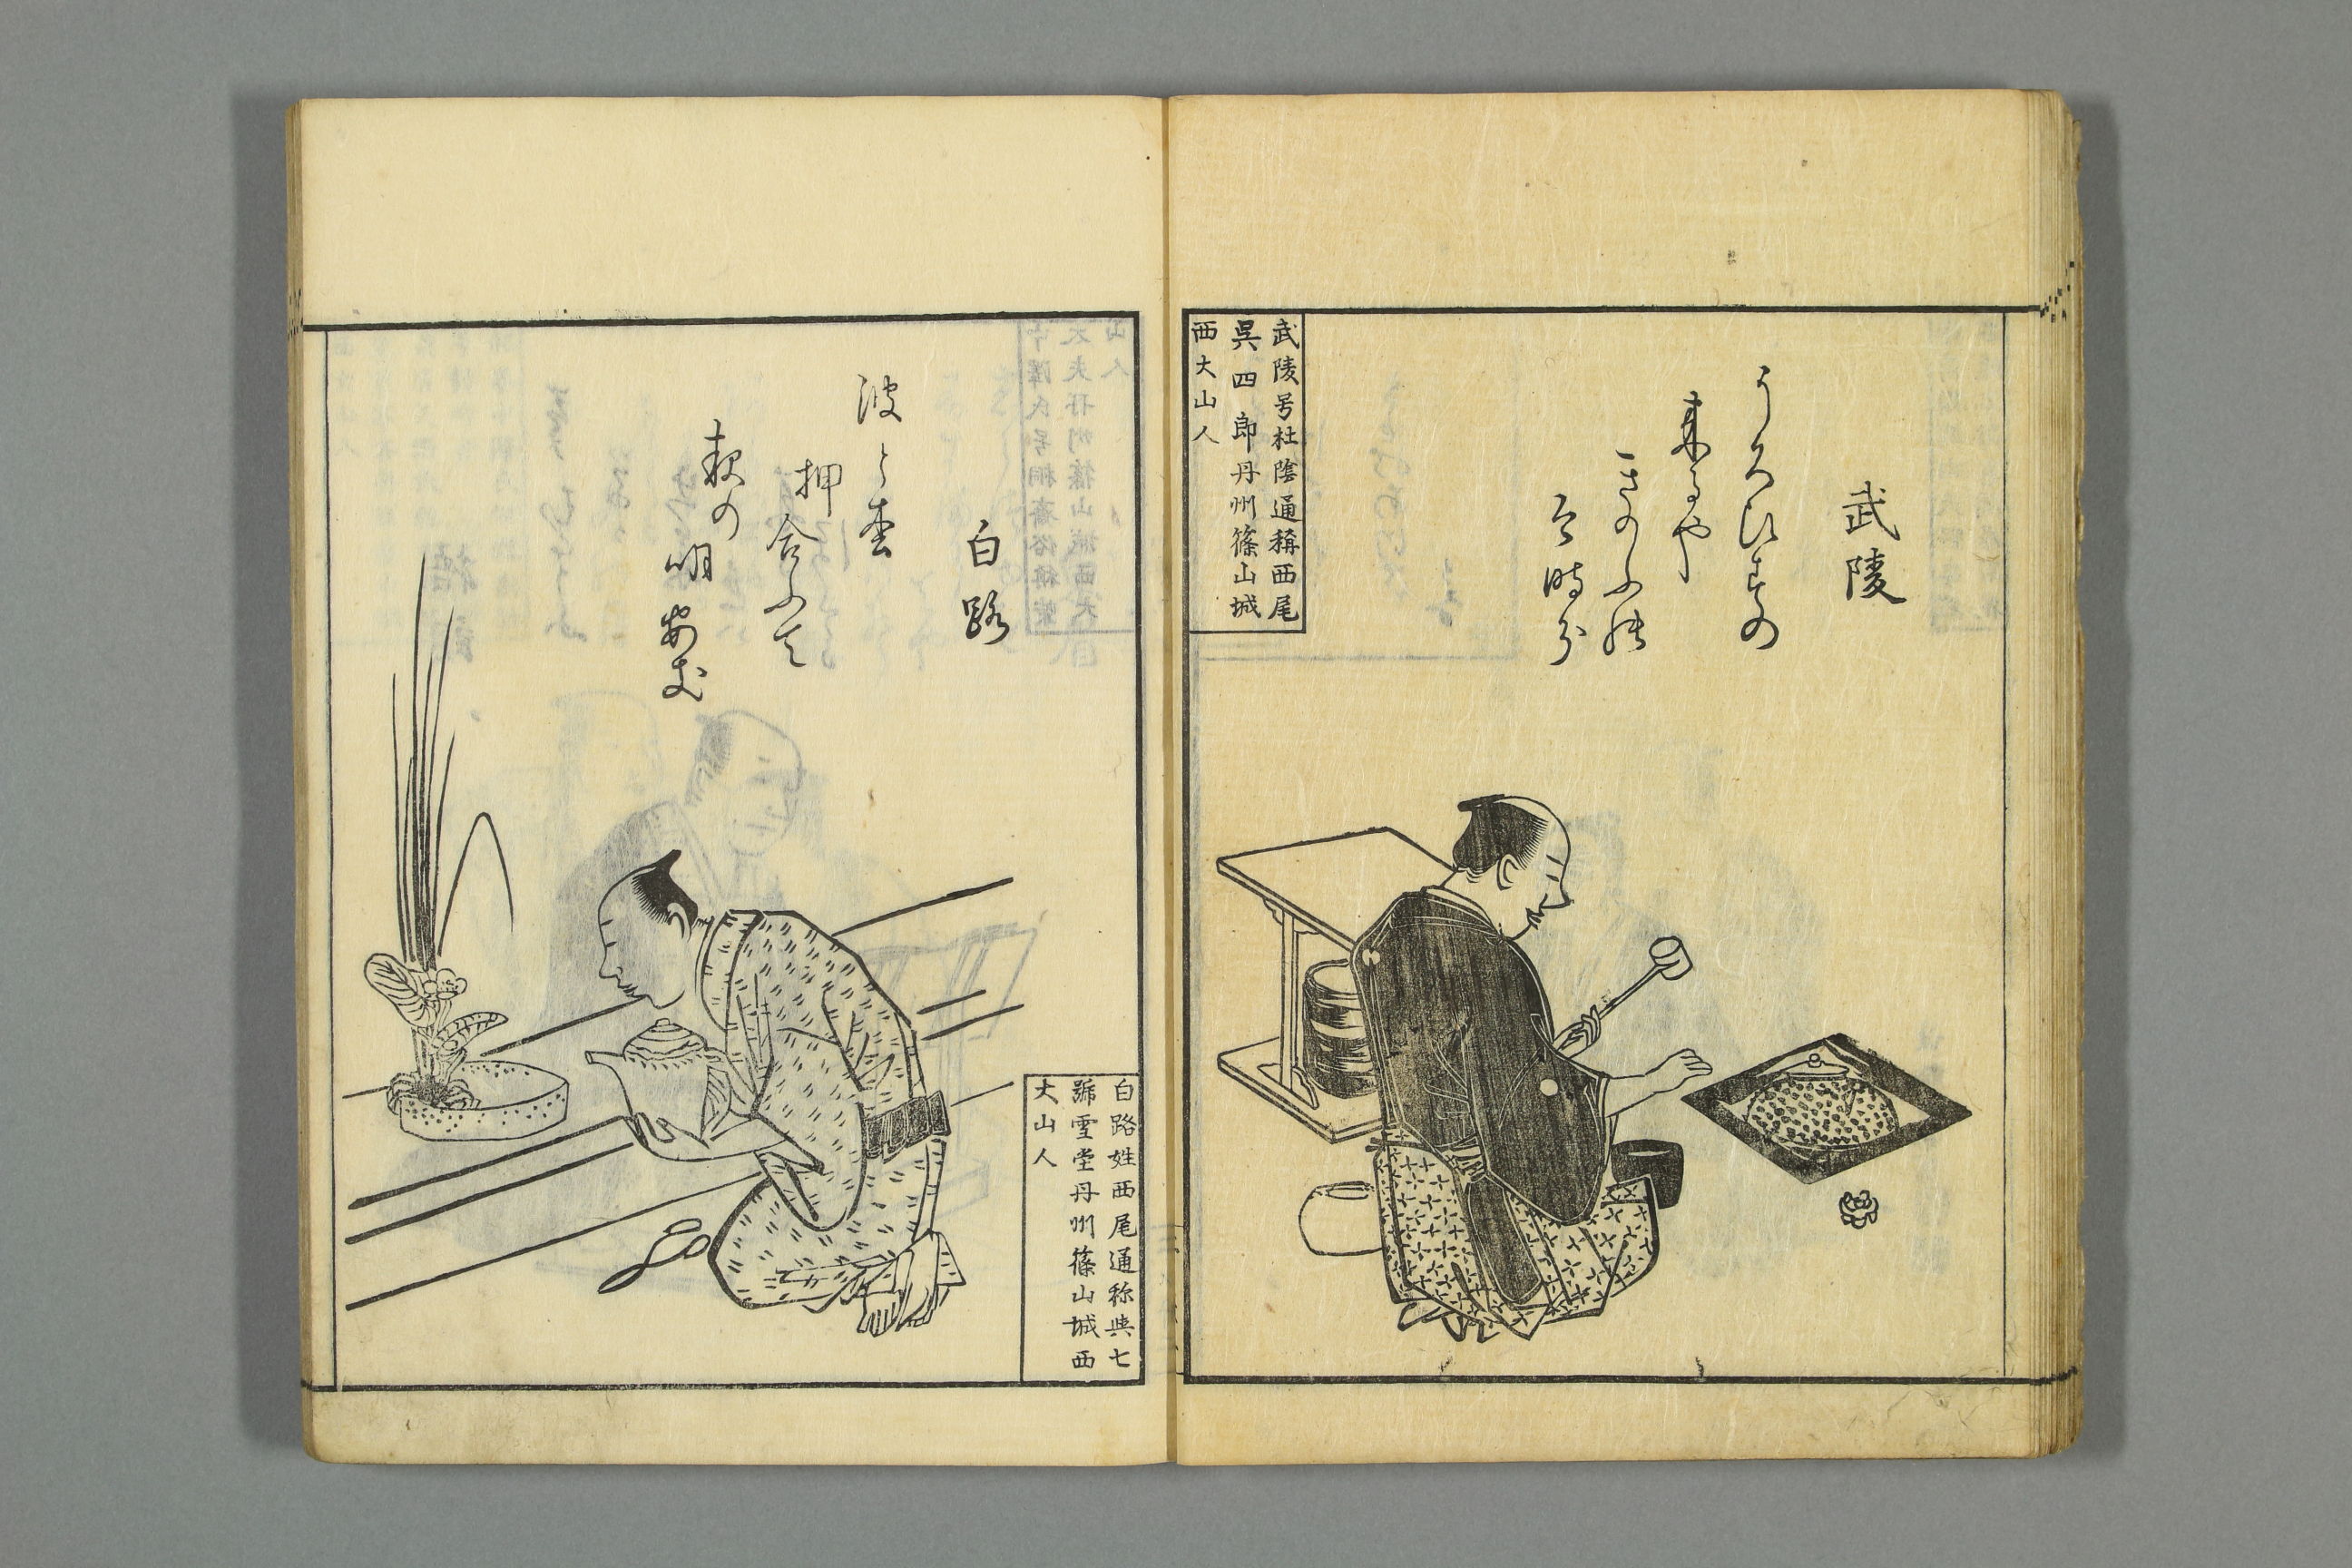 武陵
うくひすの
来るや
きのふの
今時分
武陵号杜蔭通稱西尾
呉四郎丹州篠山城
西大山人
白路
波と雲
押
合ふて
萩の
明
白路姓西尾通称典七
號雪堂丹州篠山城西
大山人